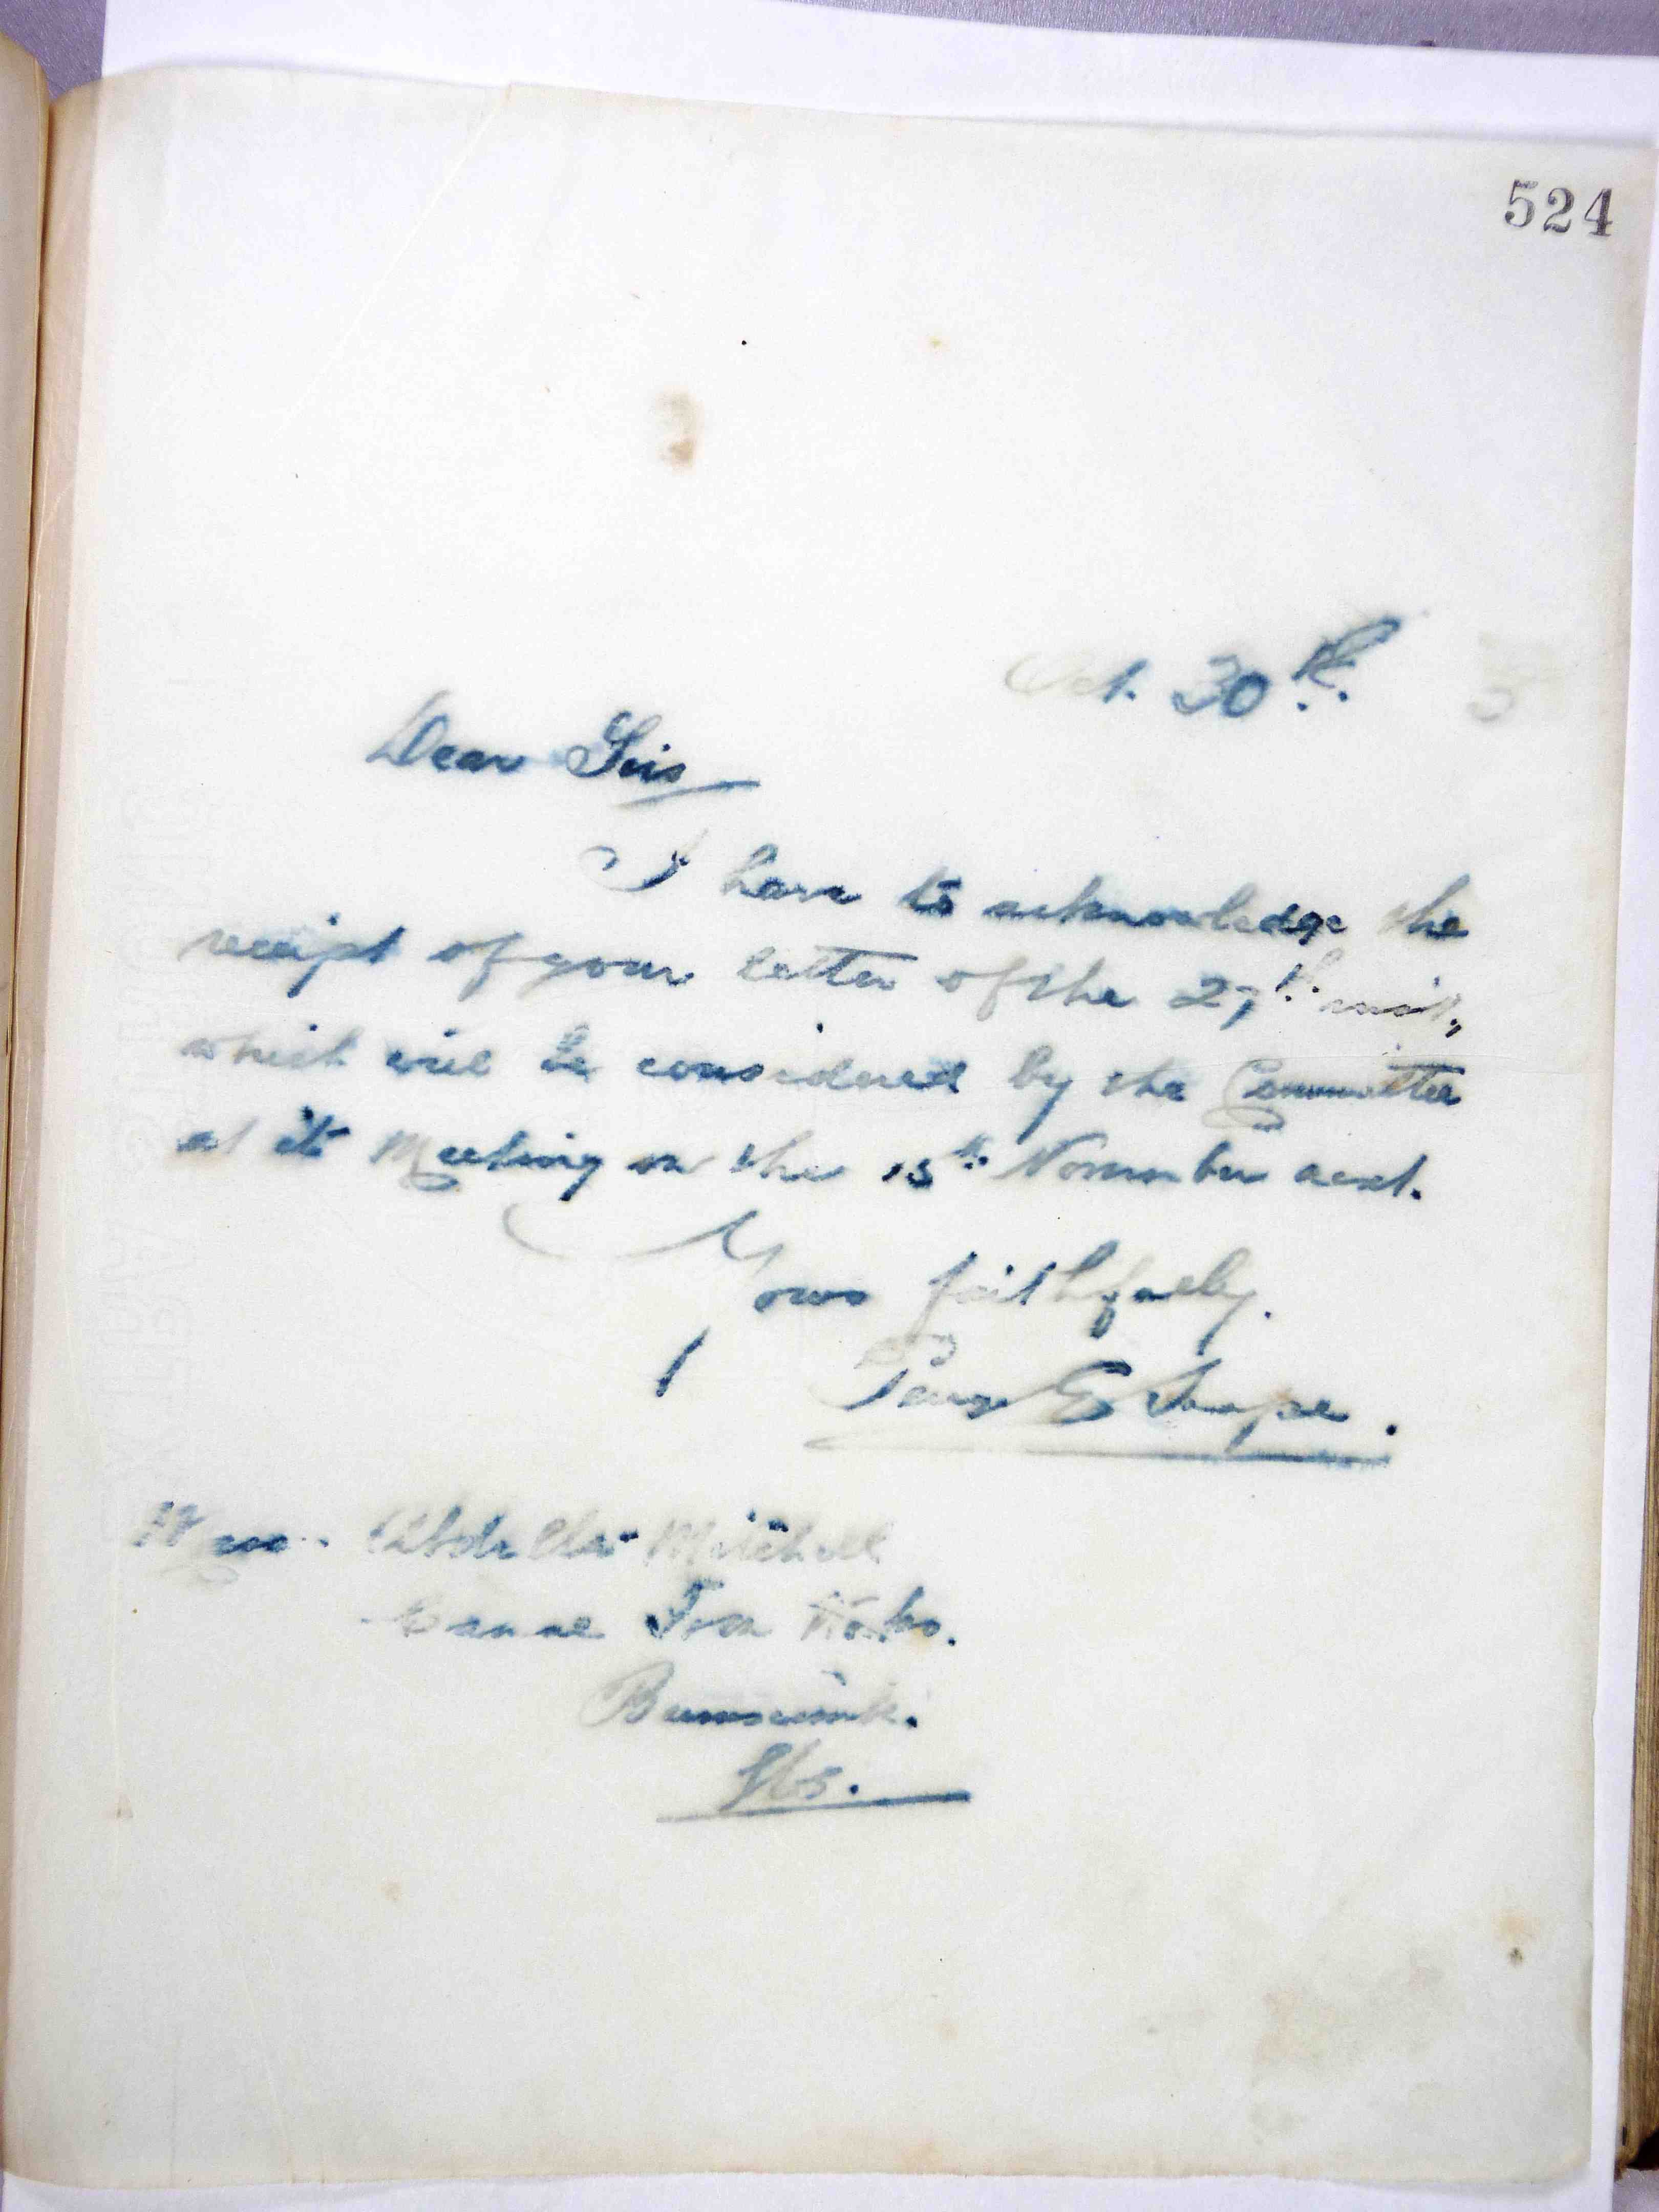 524
Oct. 30th. 5
Dear Sirs
I have to acknowledge the
receipt of your letter of the 27th. inst.,
which will be considered by the Committee
at its Meeting on the 15th. November next.
Yours faithfully.
Messrs. Abdulla Mitchell
Canal Iron Works.
Brimscomb.
Glos.